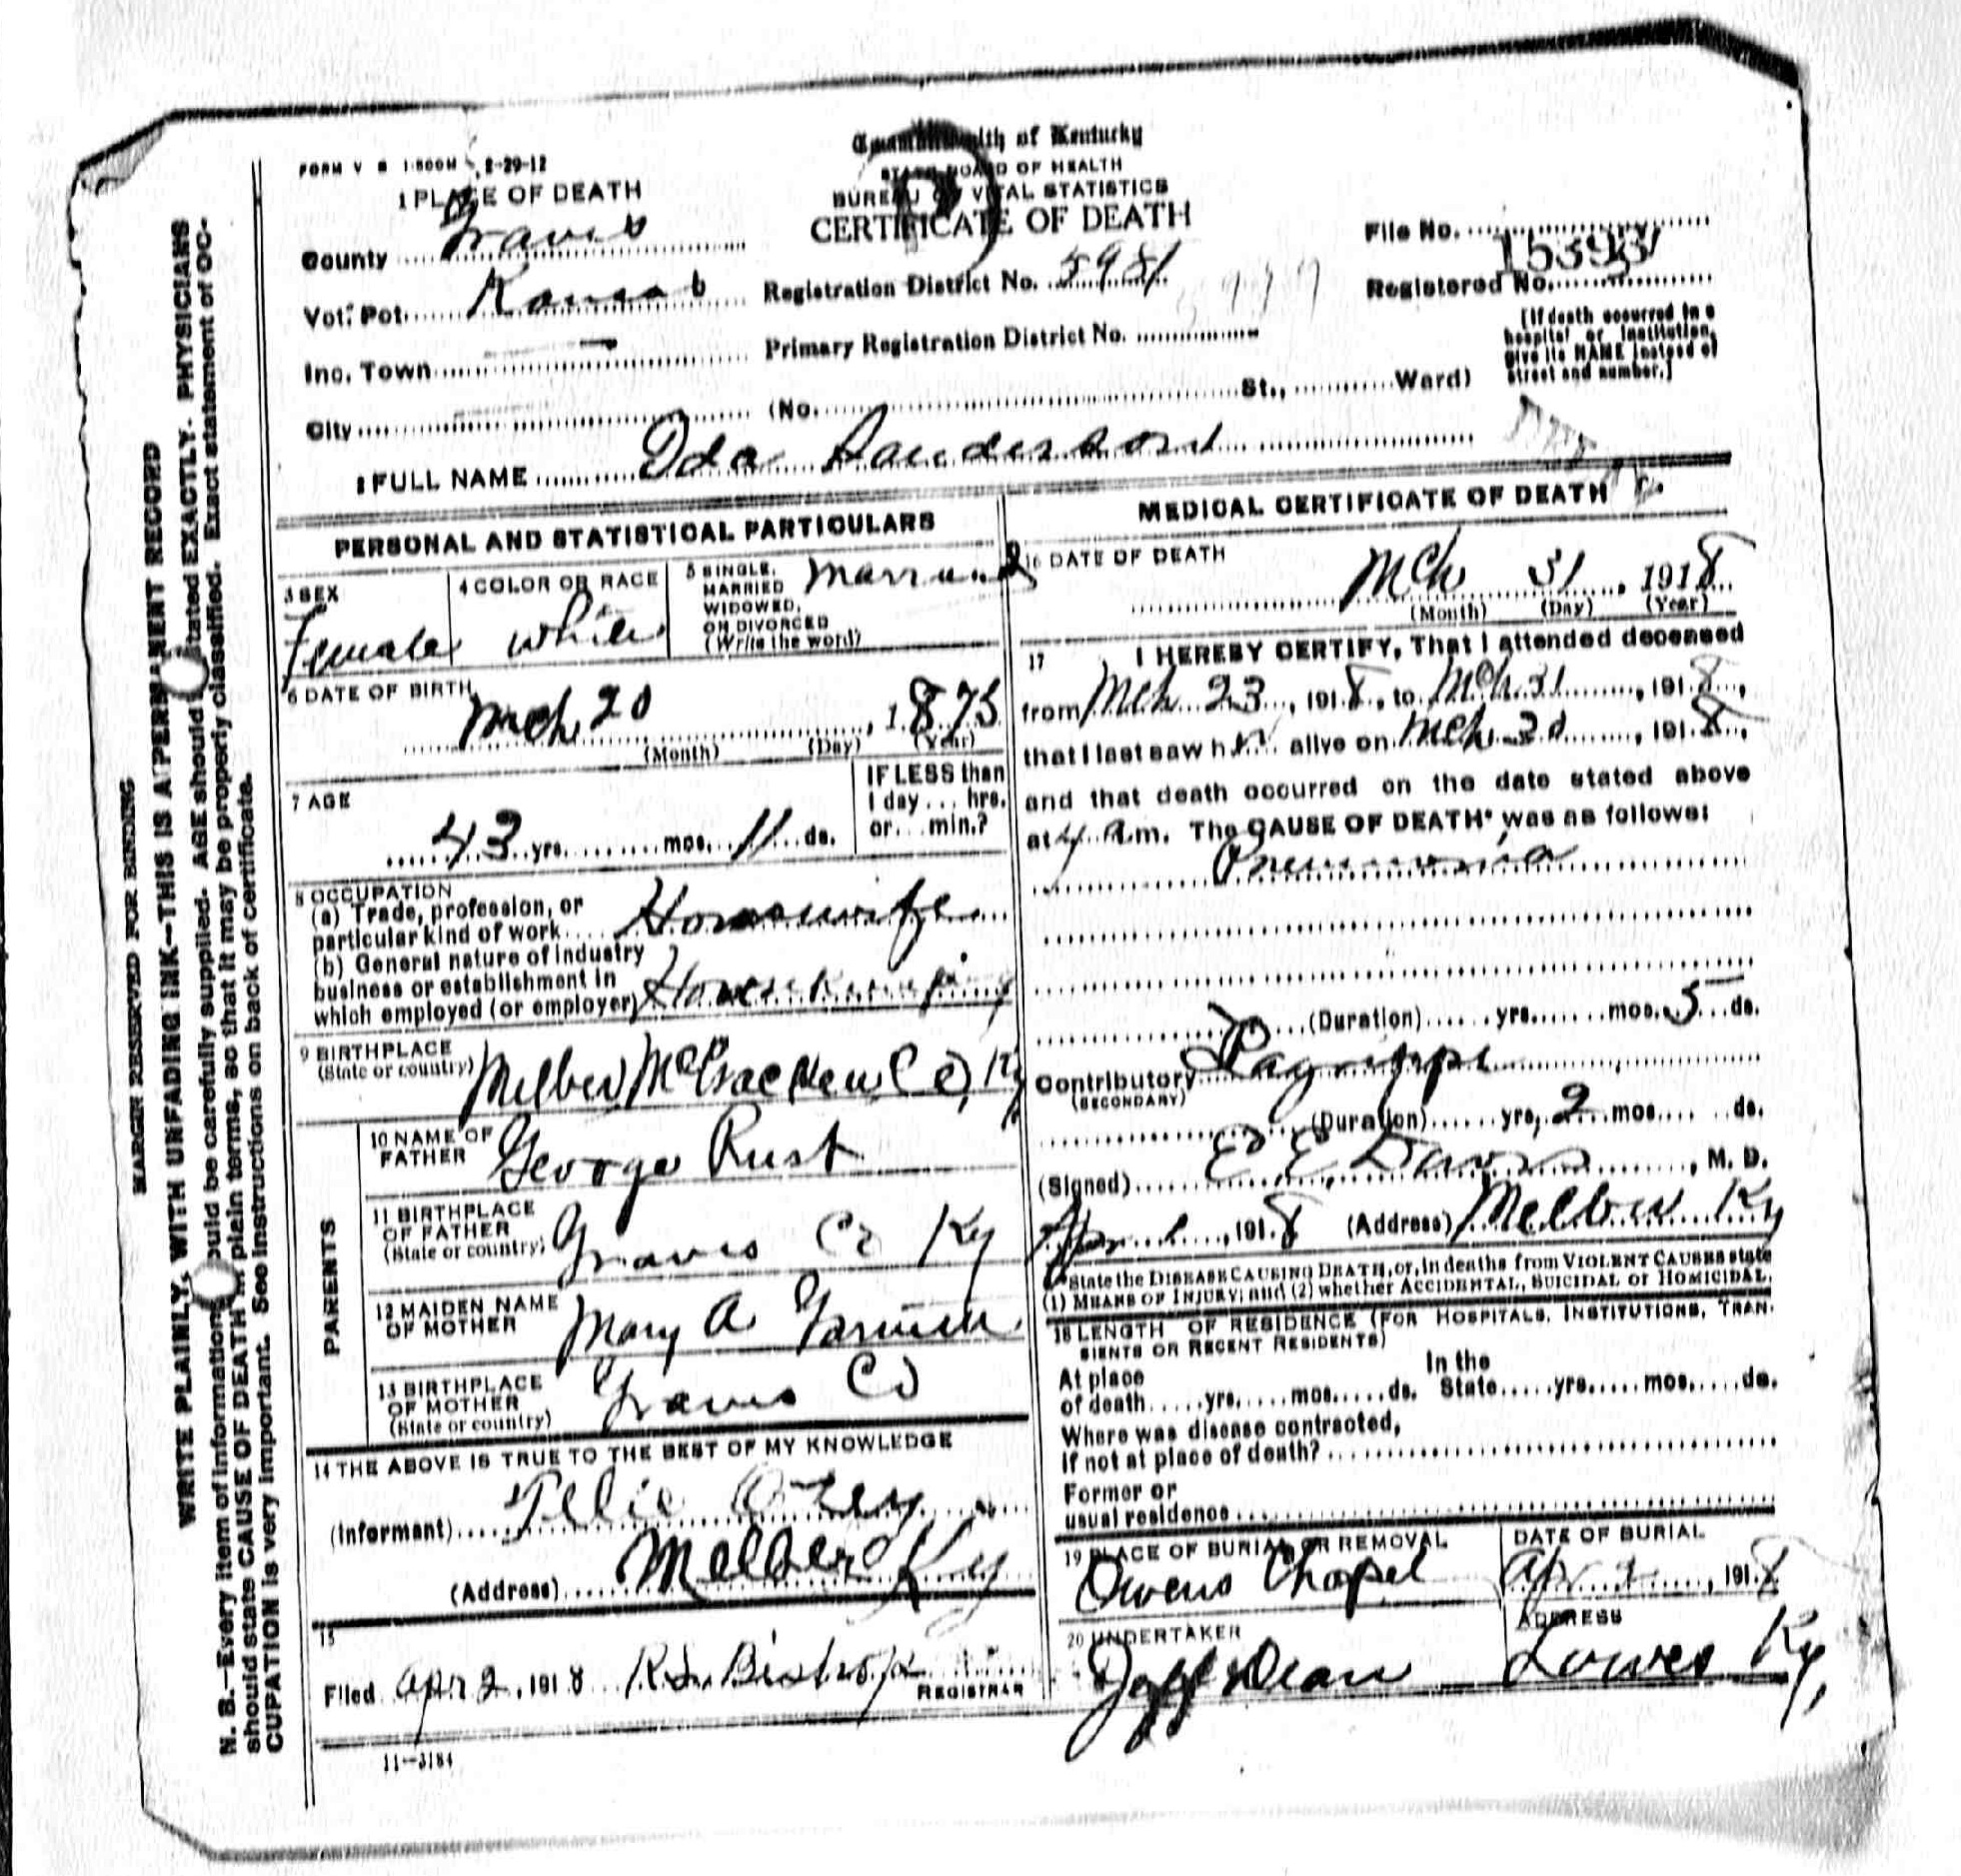 FORM V S 1-500M 2-29-12
Commonwealth of Kentucky
STATE BOARD OF HEALTH
BUREAU OF VITAL STATISTICS
CERTIFICATE OF DEATH
1 PLACE OF DEATH
County Graves
Vot. Pct. Kansas
Inc. Town
City
Registration District No. 5981
Primary Registration District No.
(No. St., Ward)
File No. 15393
Registered No.
[If death occurred in a
hospital or institution,
give its NAME instead of
street and number.]
2 FULL NAME Ida Sanderson
PERSONAL AND STATISTICAL PARTICULARS
3 SEX
Female
4 COLOR OR RACE
White
5 SINGLE,
MARRIED
WIDOWED,
OR DIVORCED
(Write the word)
Married
6 DATE OF BIRTH
Mch 20, 1875
(Month) (Day) (Year)
7 AGE
43 yrs. mos. 11 ds.
IF LESS than
1 day ... hrs.
or ... min.?
8 OCCUPATION
(a) Trade, profession, or
particular kind of work Housewife
(b) General nature of industry
business or establishment in
which employed (or employer) Housekeeping
9 BIRTHPLACE
(State or country) Melber McCracken Co, Ky
PARENTS
10 NAME OF
FATHER George Rust
11 BIRTHPLACE
OF FATHER
(State or country) Graves Co Ky
12 MAIDEN NAME
OF MOTHER Mary A
13 BIRTHPLACE
OF MOTHER
(State or country) Graves Co
14 THE ABOVE IS TRUE TO THE BEST OF MY KNOWLEDGE
(Informant)
(Address) Melber Ky
15
Filed Apr 2, 1918 R.L. Bishop
REGISTRAR
11-3184
MEDICAL CERTIFICATE OF DEATH
16 DATE OF DEATH
Mch 31, 1918
(Month) (Day) (Year)
17 I HEREBY CERTIFY, That I attended deceased
from Mch 23, 1918, to Mch 31, 1918,
that I last saw her alive on Mch 30, 1918,
and that death occurred on the date stated above
at 4 a.m. The CAUSE OF DEATH* was as follows:
Pneumonia
(Duration) yrs. mos. 5 ds.
Contributory Lagrippe
(SECONDARY)
(Duration) yrs. 2 mos. ds.
(Signed) E E Davis, M. D.
Apr 1, 1918 (Address) Melber Ky
*State the DISEASE CAUSING DEATH, or, in deaths from VIOLENT CAUSES state
(1) MEANS OF INJURY; and (2) whether ACCIDENTAL, SUICIDAL or HOMICIDAL.
18 LENGTH OF RESIDENCE (FOR HOSPITALS, INSTITUTIONS, TRAN-
SIENTS OR RECENT RESIDENTS)
At place
of death yrs. mos. ds.
In the
State yrs. mos. ds.
Where was disease contracted,
if not at place of death?
Former or
usual residence
19 PLACE OF BURIAL OR REMOVAL
Owens Chapel
DATE OF BURIAL
Apr 2, 1918
20 UNDERTAKER
Jeff Dean
ADDRESS
Lowes Ky,
MARGIN RESERVED FOR BINDING
WRITE PLAINLY, WITH UNFADING INK—THIS IS A PERMANENT RECORD
N. B.—Every item of information should be carefully supplied. AGE should be stated EXACTLY. PHYSICIANS
should state CAUSE OF DEATH in plain terms, so that it may be properly classified. Exact statement of OC-
CUPATION is very important. See instructions on back of certificate.